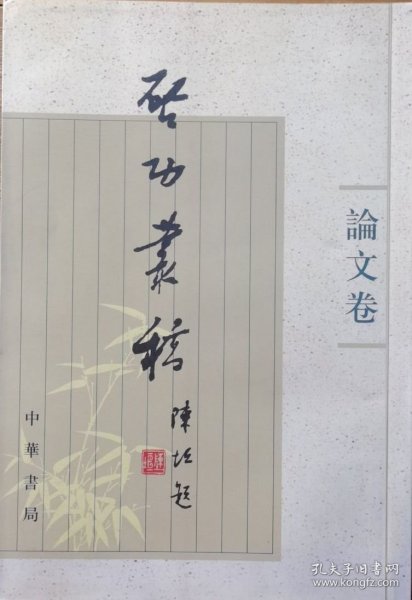 論文卷
啓功叢稿
陳垣題
中華書局
孔夫子旧书网
www.kongfz.com